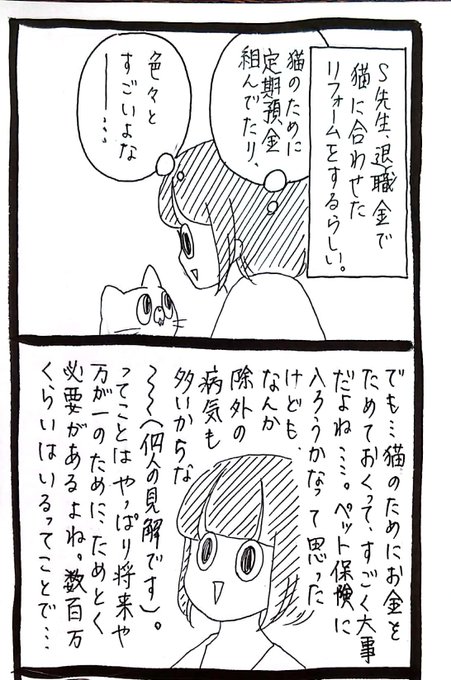 S先生、退職金で
猫に合わせた
リフォームをするらしい。
猫のために
定期預金
組んでたり、
色々と
すごいよな
ー…
でも…猫のためにお金を
ためておくって、すごく大事
だよね…。ペット保険に
入ろうかなって思った
けども、
なんか
除外の
病気も
多いからな
〜〜(個人の見解です)。
ってことはやっぱり将来や
万が一のために、ためとく
必要があるよね。数百万
くらいはいるってことで…